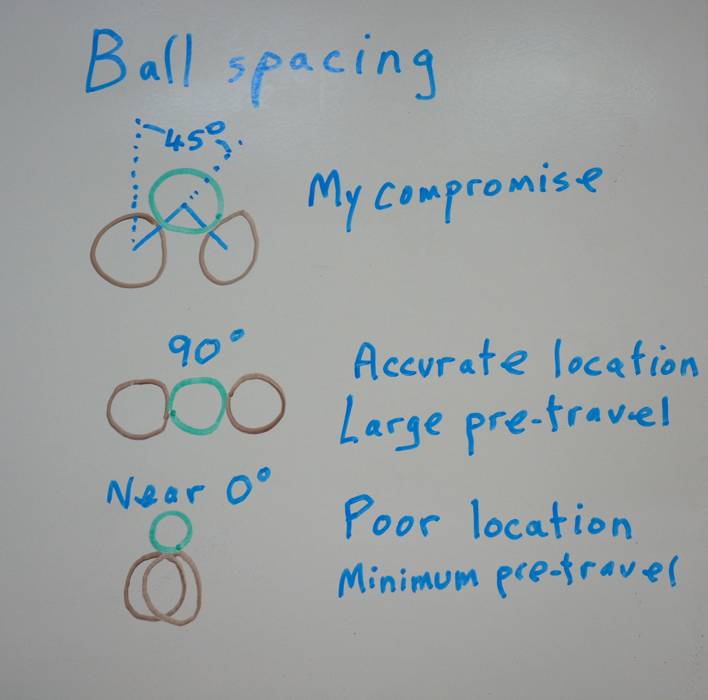 Ball spacing
45°
My compromise
90°
Accurate location
Large pre-travel
Near 0°
Poor location
Minimum pre-travel